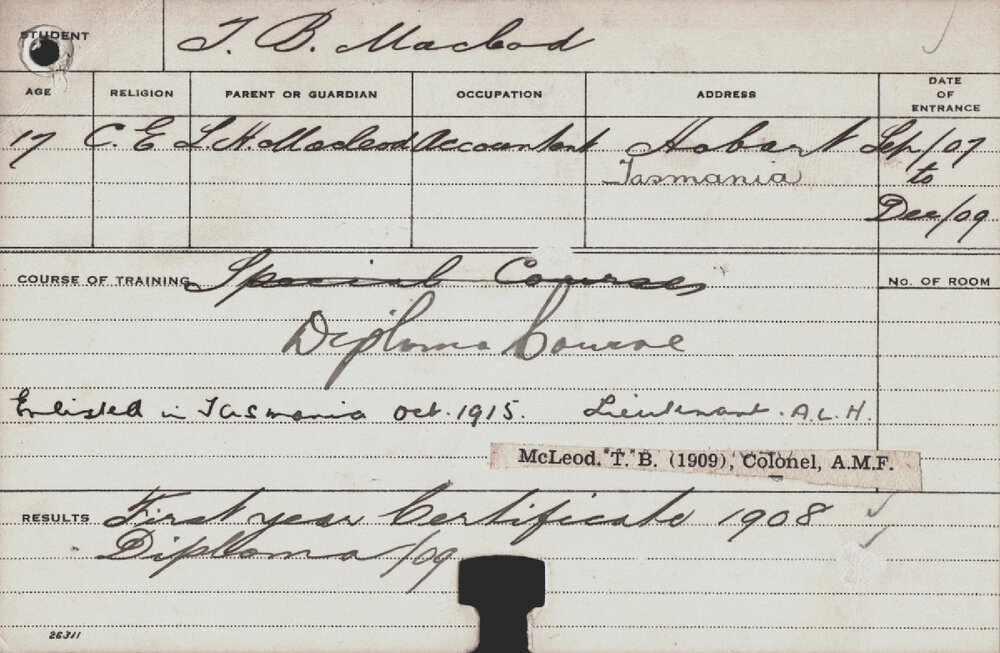 STUDENT T. B. Macleod
AGE RELIGION PARENT OR GUARDIAN OCCUPATION ADDRESS DATE OF ENTRANCE
17 C. E L. H. Macleod Accountant Hobart Sep/07
Tasmania to
Dec/09
COURSE OF TRAINING Special Course No. OF ROOM
Diploma Course
Enlisted in Tasmania Oct. 1915. Lieutenant. A.L.H.
McLeod. "T." B. (1909), Colonel, A.M.F.
RESULTS First year Certificate 1908
Diploma /09
26311